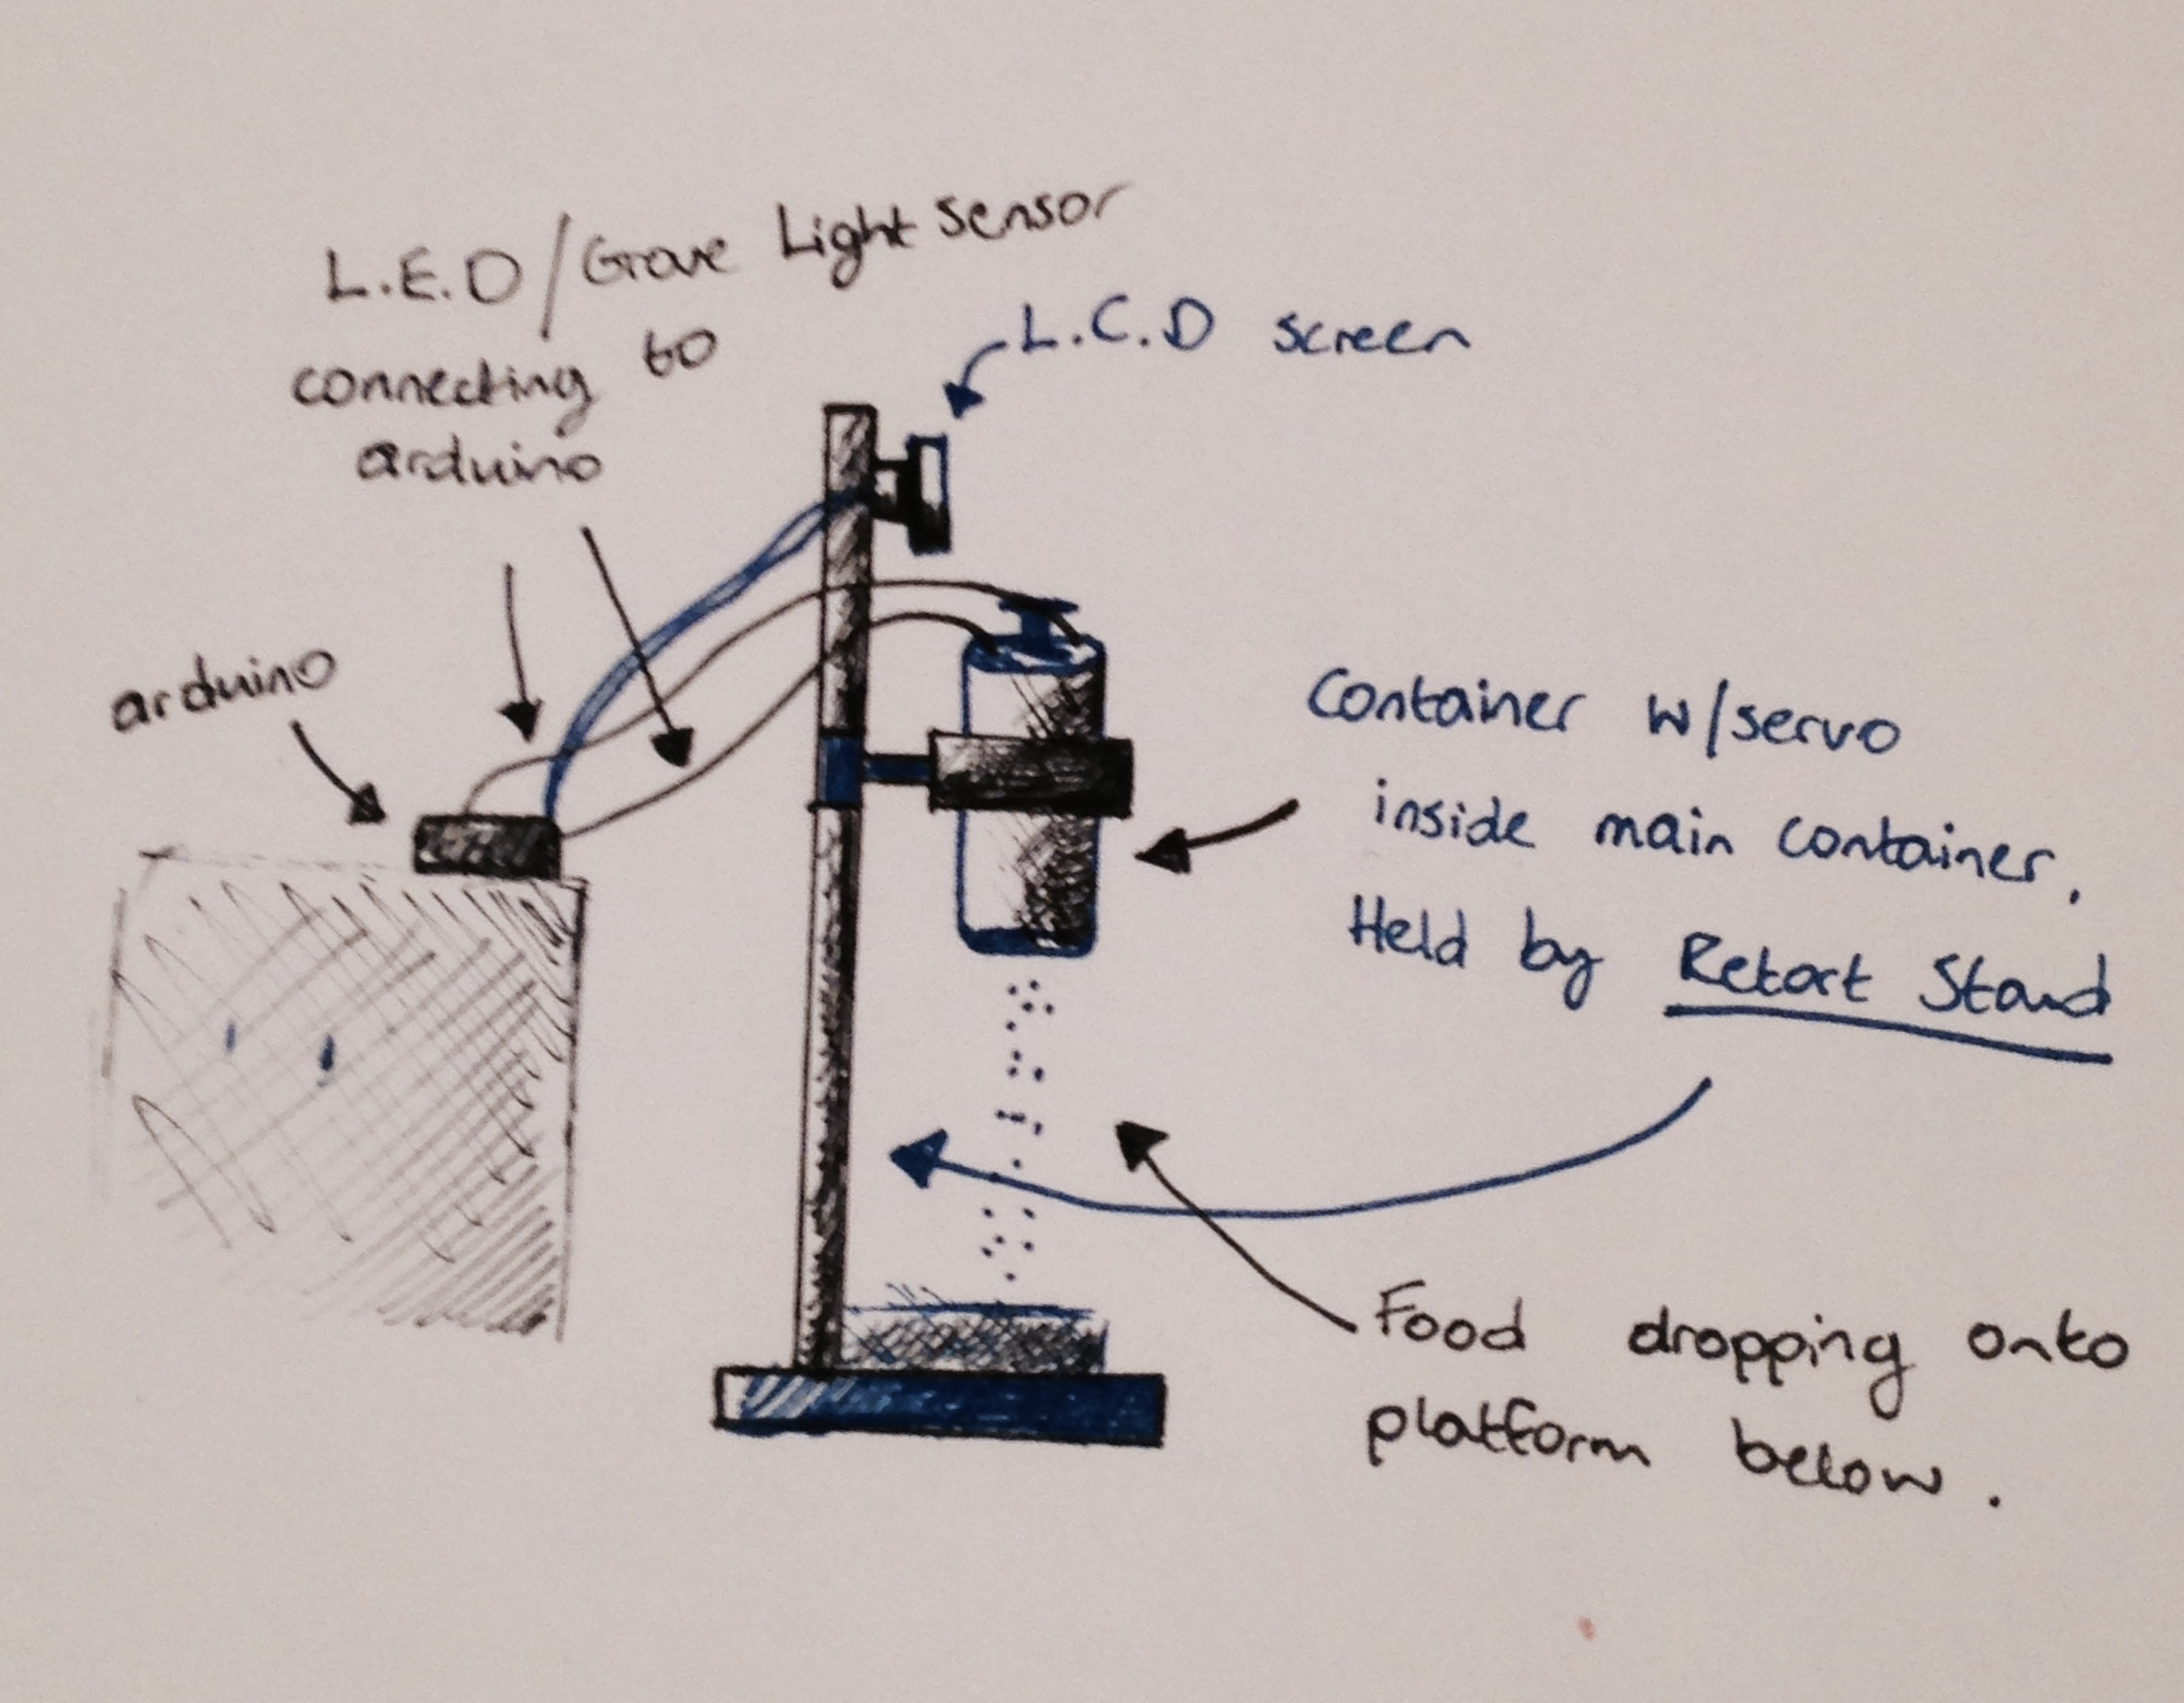 L.E.D/Grove Light Sensor
connecting to
arduino
L.C.D screen
arduino
Container w/servo
inside main container.
Held by Retort Stand
Food dropping onto
platform below.